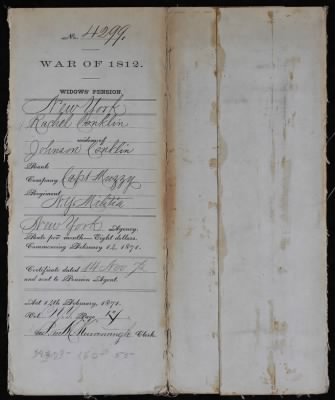 No. 4299.
WAR OF 1812.
WIDOWS' PENSION.
New York
Rachel Conklin
widow of
Johnson Conklin
Rank
Company Capt Muzzy
Regiment
N.Y. Militia
New York Agency.
Rate per month—Eight dollars.
Commencing February 14, 1871.
Certificate dated 14 Nov 72
and sent to Pension Agent.
Act 14th February, 1871.
Vol. Page
Clerk.